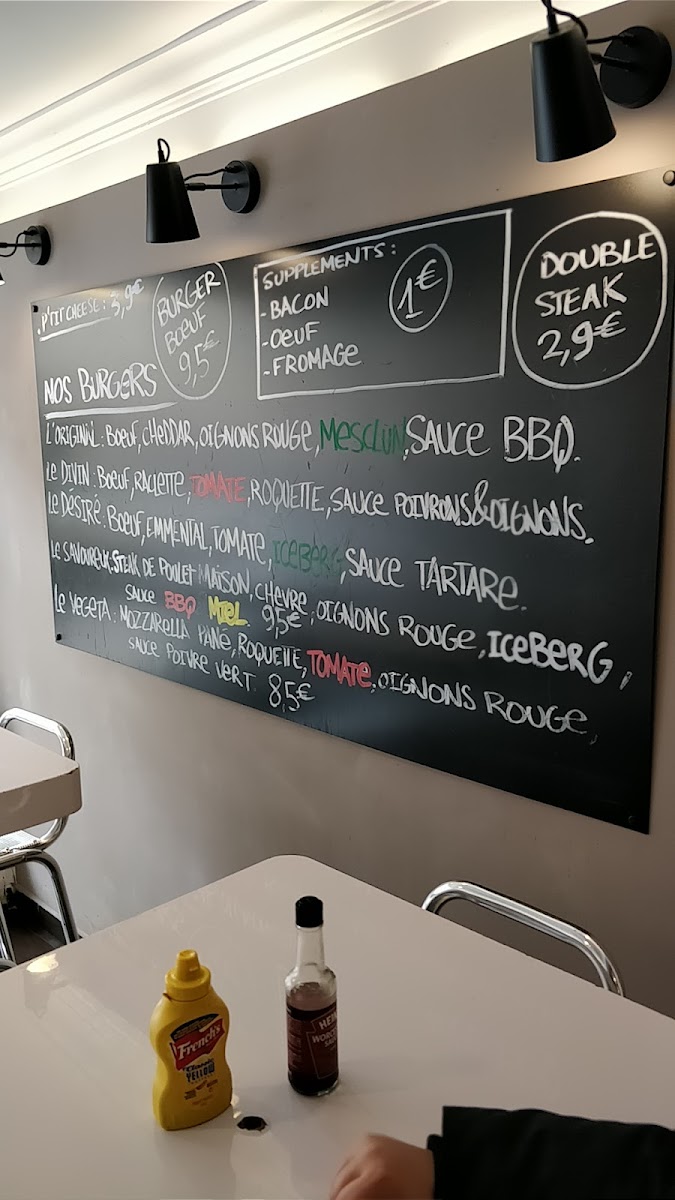 . P'TIT CHEESE : 3,9€
BURGER
BŒUF
9,5€
SUPPLEMENTS :
- BACON
- OEUF
- FROMAGE
1€
DOUBLE
STEAK
2,9€
NOS BURGERS
L'ORIGINAL : BOEUF, CHEDDAR, OIGNONS ROUGE, MESCLUN, SAUCE BBQ.
LE DIVIN : BOEUF, RACLETTE, TOMATE, ROQUETTE, SAUCE POIVRONS & OIGNONS.
LE DÉSIRÉ : BOEUF, EMMENTAL, TOMATE, ICEBERG, SAUCE TARTARE.
LE SAVOUREUX, STEAK DE POULET MAISON, CHEVRE, OIGNONS ROUGE, ICEBERG,
SAUCE BBQ MIEL 9,5€
LE VEGETA : MOZZARELLA PANÉ, ROQUETTE, TOMATE, OIGNONS ROUGE,
SAUCE POIVRE VERT. 8,5€
French's
Classic
YELLOW
HEINZ